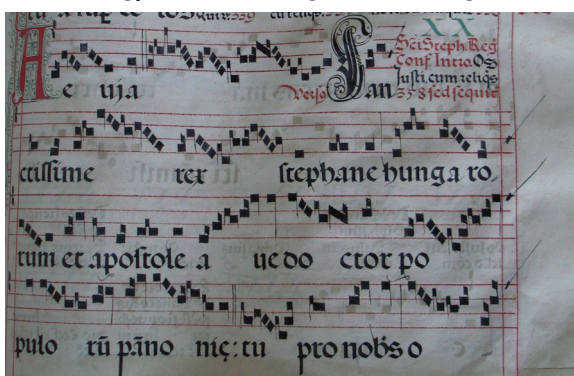 XX
Sci Steph. Reg
Conf Intro. Os
Justi. cum reliqs
358 sed sequit
Ae uja Verso San
ctissime rex stephane hunga ro
rum et apostole a ue do ctor po
pulo rū pāno nic̨: tu pro nobs o